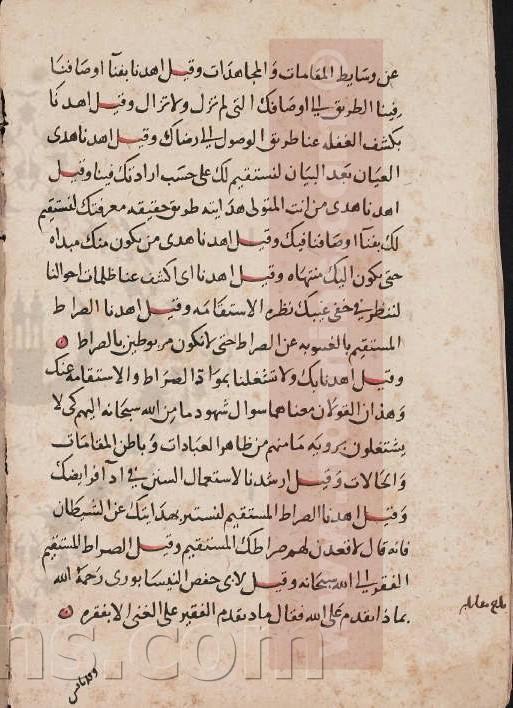 عن وسايط المقامات والمجاهدات وقيل اهدنا بفنآ اوصافنا
فينا الطريق الى اوصافك التى لم تزل ولا تزال وقيل اهدنا
بكشف الغفله عنا طريق الوصول الى رضاك وقيل اهدنا هدى
العيان بعد البيان لنستقيم لك على حسب ارادتك فينا وقيل
اهدنا هدى من انت المتولى هدايته طريق حقيقه معرفتك لنستقيم
لك بفنآ اوصافنا فيك وقيل اهدنا هدى من يكون منك مبداه
حتى يكون اليك منتهاه وقيل اهدنا اى اكشف عنا ظلمات احوالنا
لننظر فى خفى غيبك نظرة الاستقامه وقيل اهدنا الصراط
المستقيم بالغيبوبه عن الصراط حتى لا نكون مربوطين بالصراط
وقيل اهدنا بك ولا تشغلنا بموادة الصراط والاستقامة عنك
وهذان القولان معناهما سوال شهود ما من الله سبحانه اليهم كى لا
يشتغلون بروية ما منهم من ظاهر العبادات وباطن المقامات
والحالات وقيل ارشدنا لاستعمال السنن فى ادآ فرايضك
وقيل اهدنا الصراط المستقيم لنستتر بهدايتك عن الشيطان
فانه قال لاقعدن لهم صراطك المستقيم وقيل الصراط المستقيم
الفقر الى الله سبحانه وقيل لابى حفص النيسابورى رحمة الله
بماذا تقدم على الله فقال ما ذا يقدم الفقير على الغنى الا بفقره
بلغ مقابله
ns.com